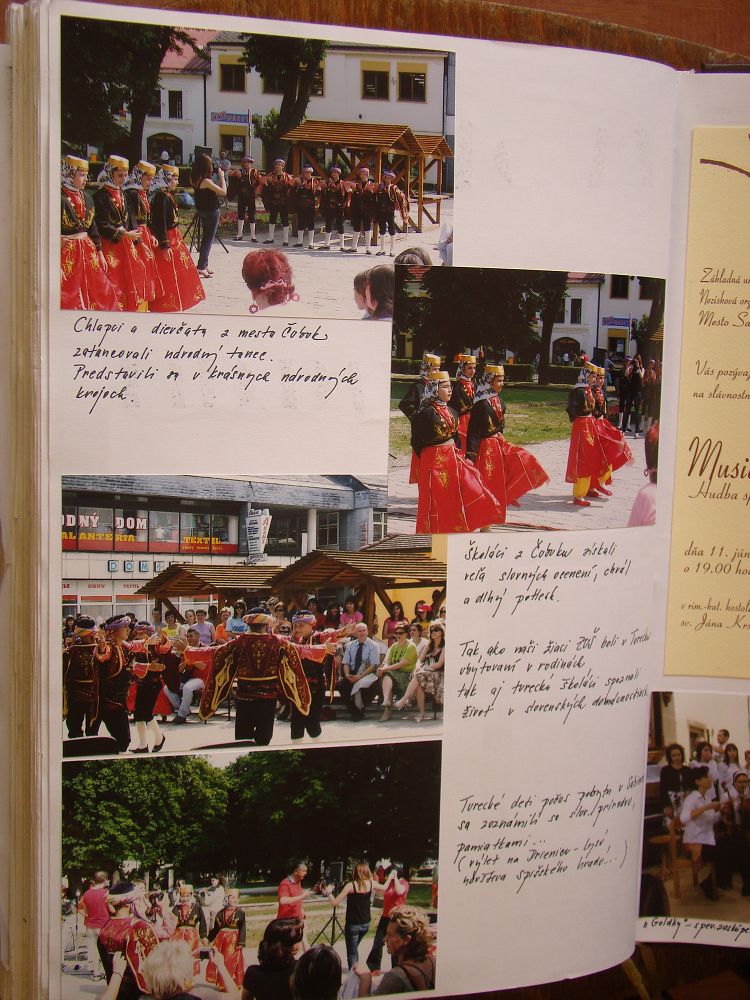 Chlapci a dievčatá z mesta Čobuk
zatancovali národný tanec.
Predstavili sa v krásnych národných
krojoch.
Školáci z Čobuku získali
veľa slovných ocenení, chvál
a dlhý potlesk.
Tak ako naši žiaci ZUŠ boli v Turecku
ubytovaní v rodinách
tak aj turecká školáci spoznali
život v slovenských domácnostiach.
Turecké deti počas pobytu v
sa zoznámili so slov. prírodou,
pamiatkami...
(výlet na Drienicu - Lysú,
návšteva spišského hradu...!)
ODNÝ DOM
ALANTERIA
TEXTIL
ODEV
DOM
Základná um
Nezisková org
Mesto Sa
Vás pozýva
na slávnostn
Music
Hudba sp
dňa 11. jún
o 19.00 ho
v rím.-kat. kostole
sv. Jána Krs
"Goldky" - spev. zoskupe